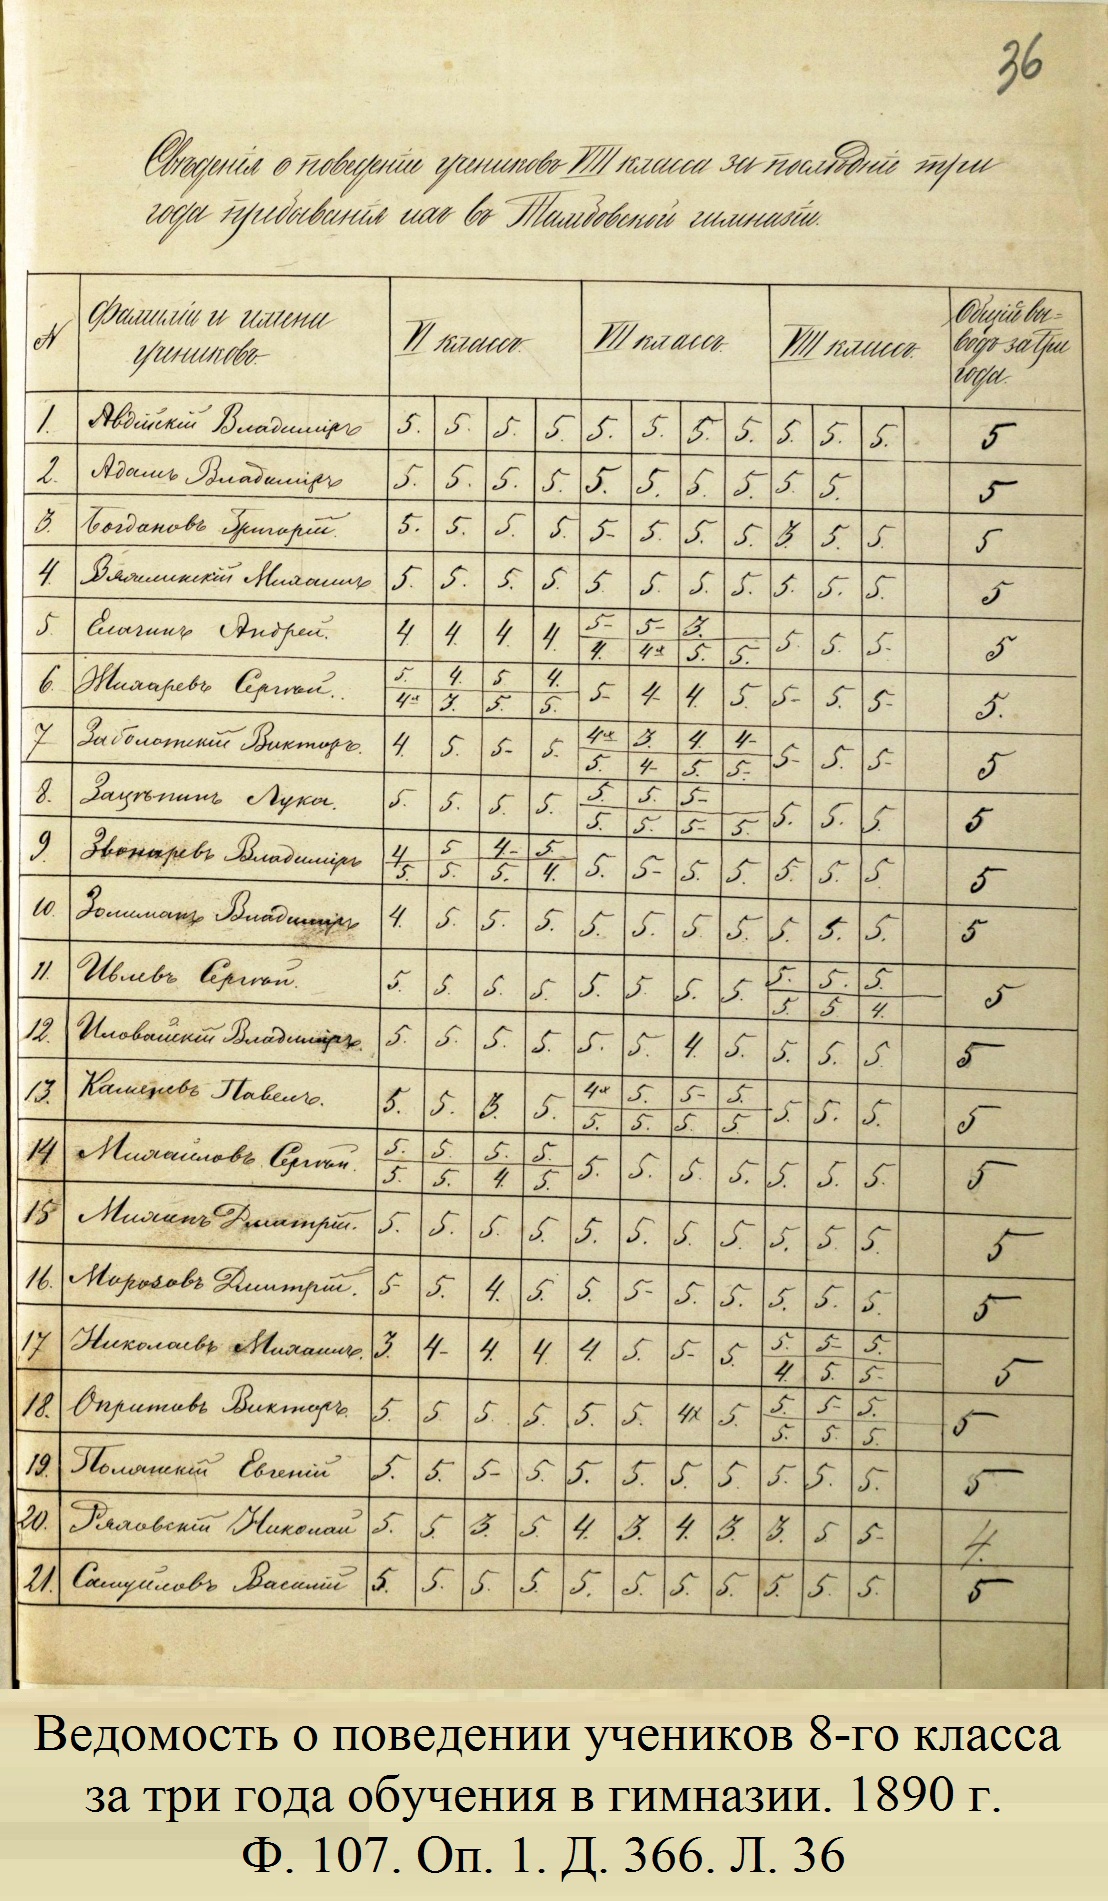 36
Свѣденія о поведеніи учениковъ VIII класса за послѣдніе три
года пребыванія ихъ въ Тамбовской гимназіи.
N Фамиліи и имени учениковъ. VI классъ. VII классъ. VIII классъ. Общій вы-
водъ за три
года.
1. Авдійскій Владиміръ 5. 5. 5. 5. 5. 5. 5. 5. 5. 5. 5. 5
2. Адамъ Владиміръ 5. 5. 5. 5. 5. 5. 5. 5. 5. 5. 5
3. Богдановъ Григорій. 5. 5. 5. 5. 5- 5. 5. 5. 3. 5. 5. 5
4. Михаилъ 5. 5. 5. 5. 5. 5. 5. 5. 5. 5. 5. 5
5. Елагинъ Андрей. 4. 4. 4. 4. 5- 5- 3. 5. 5. 5- 5
4. 4х 5. 5.
6. Жихаревъ Сергѣй. 5. 4. 5 4. 5- 4- 4. 5. 5- 5. 5- 5.
4х 3. 5. 5.
7 Заболотскій Викторъ. 4. 5. 5- 5. 4х 3. 4. 4- 5- 5. 5- 5
5. 4- 5. 5-
8. Зацѣпинъ Лука. 5. 5. 5. 5. 5. 5. 5- 5. 5. 5. 5
5. 5. 5- 5.
9. Звонаревъ Владиміръ 4. 5 4- 5. 5. 5- 5. 5. 5. 5. 5. 5
5. 5. 5. 4.
10. Владиміръ 4. 5. 5. 5. 5. 5. 5. 5. 5. 5. 5. 5
11. Ивлевъ Сергѣй. 5. 5. 5. 5. 5. 5. 5. 5. 5. 5. 5. 5
5. 5 4.
12. Иловайскій Владиміръ. 5. 5. 5. 5. 5. 5. 4. 5. 5. 5. 5. 5
13. Каменевъ Павелъ. 5. 5. 3. 5. 4х 5. 5- 5. 5. 5. 5. 5
5. 5. 5. 5.
14 Михайловъ Сергѣй. 5. 5. 5. 5. 5. 5. 5. 5. 5. 5. 5. 5
5. 5. 4. 5.
15 Дмитрій. 5. 5. 5. 5. 5. 5. 5. 5. 5. 5. 5. 5
16. Морозовъ Дмитрій. 5- 5. 4. 5. 5. 5- 5. 5. 5. 5. 5. 5
17 Николаевъ Михаилъ. 3. 4- 4. 4. 4. 5. 5- 5. 5. 5- 5. 5
4. 5. 5-
18. Викторъ. 5. 5 5. 5. 5. 5. 4х 5. 5. 5- 5. 5
5. 5. 5.
19. Полянскій Евгеній 5. 5. 5- 5. 5. 5. 5. 5. 5. 5. 5. 5
20. Николай 5. 5. 3. 5. 4. 3. 4. 3. 3. 5 5- 4.
21. Самуйловъ Василій 5. 5. 5. 5. 5. 5. 5. 5. 5. 5. 5. 5
Ведомость о поведении учеников 8-го класса
за три года обучения в гимназии. 1890 г.
Ф. 107. Оп. 1. Д. 366. Л. 36